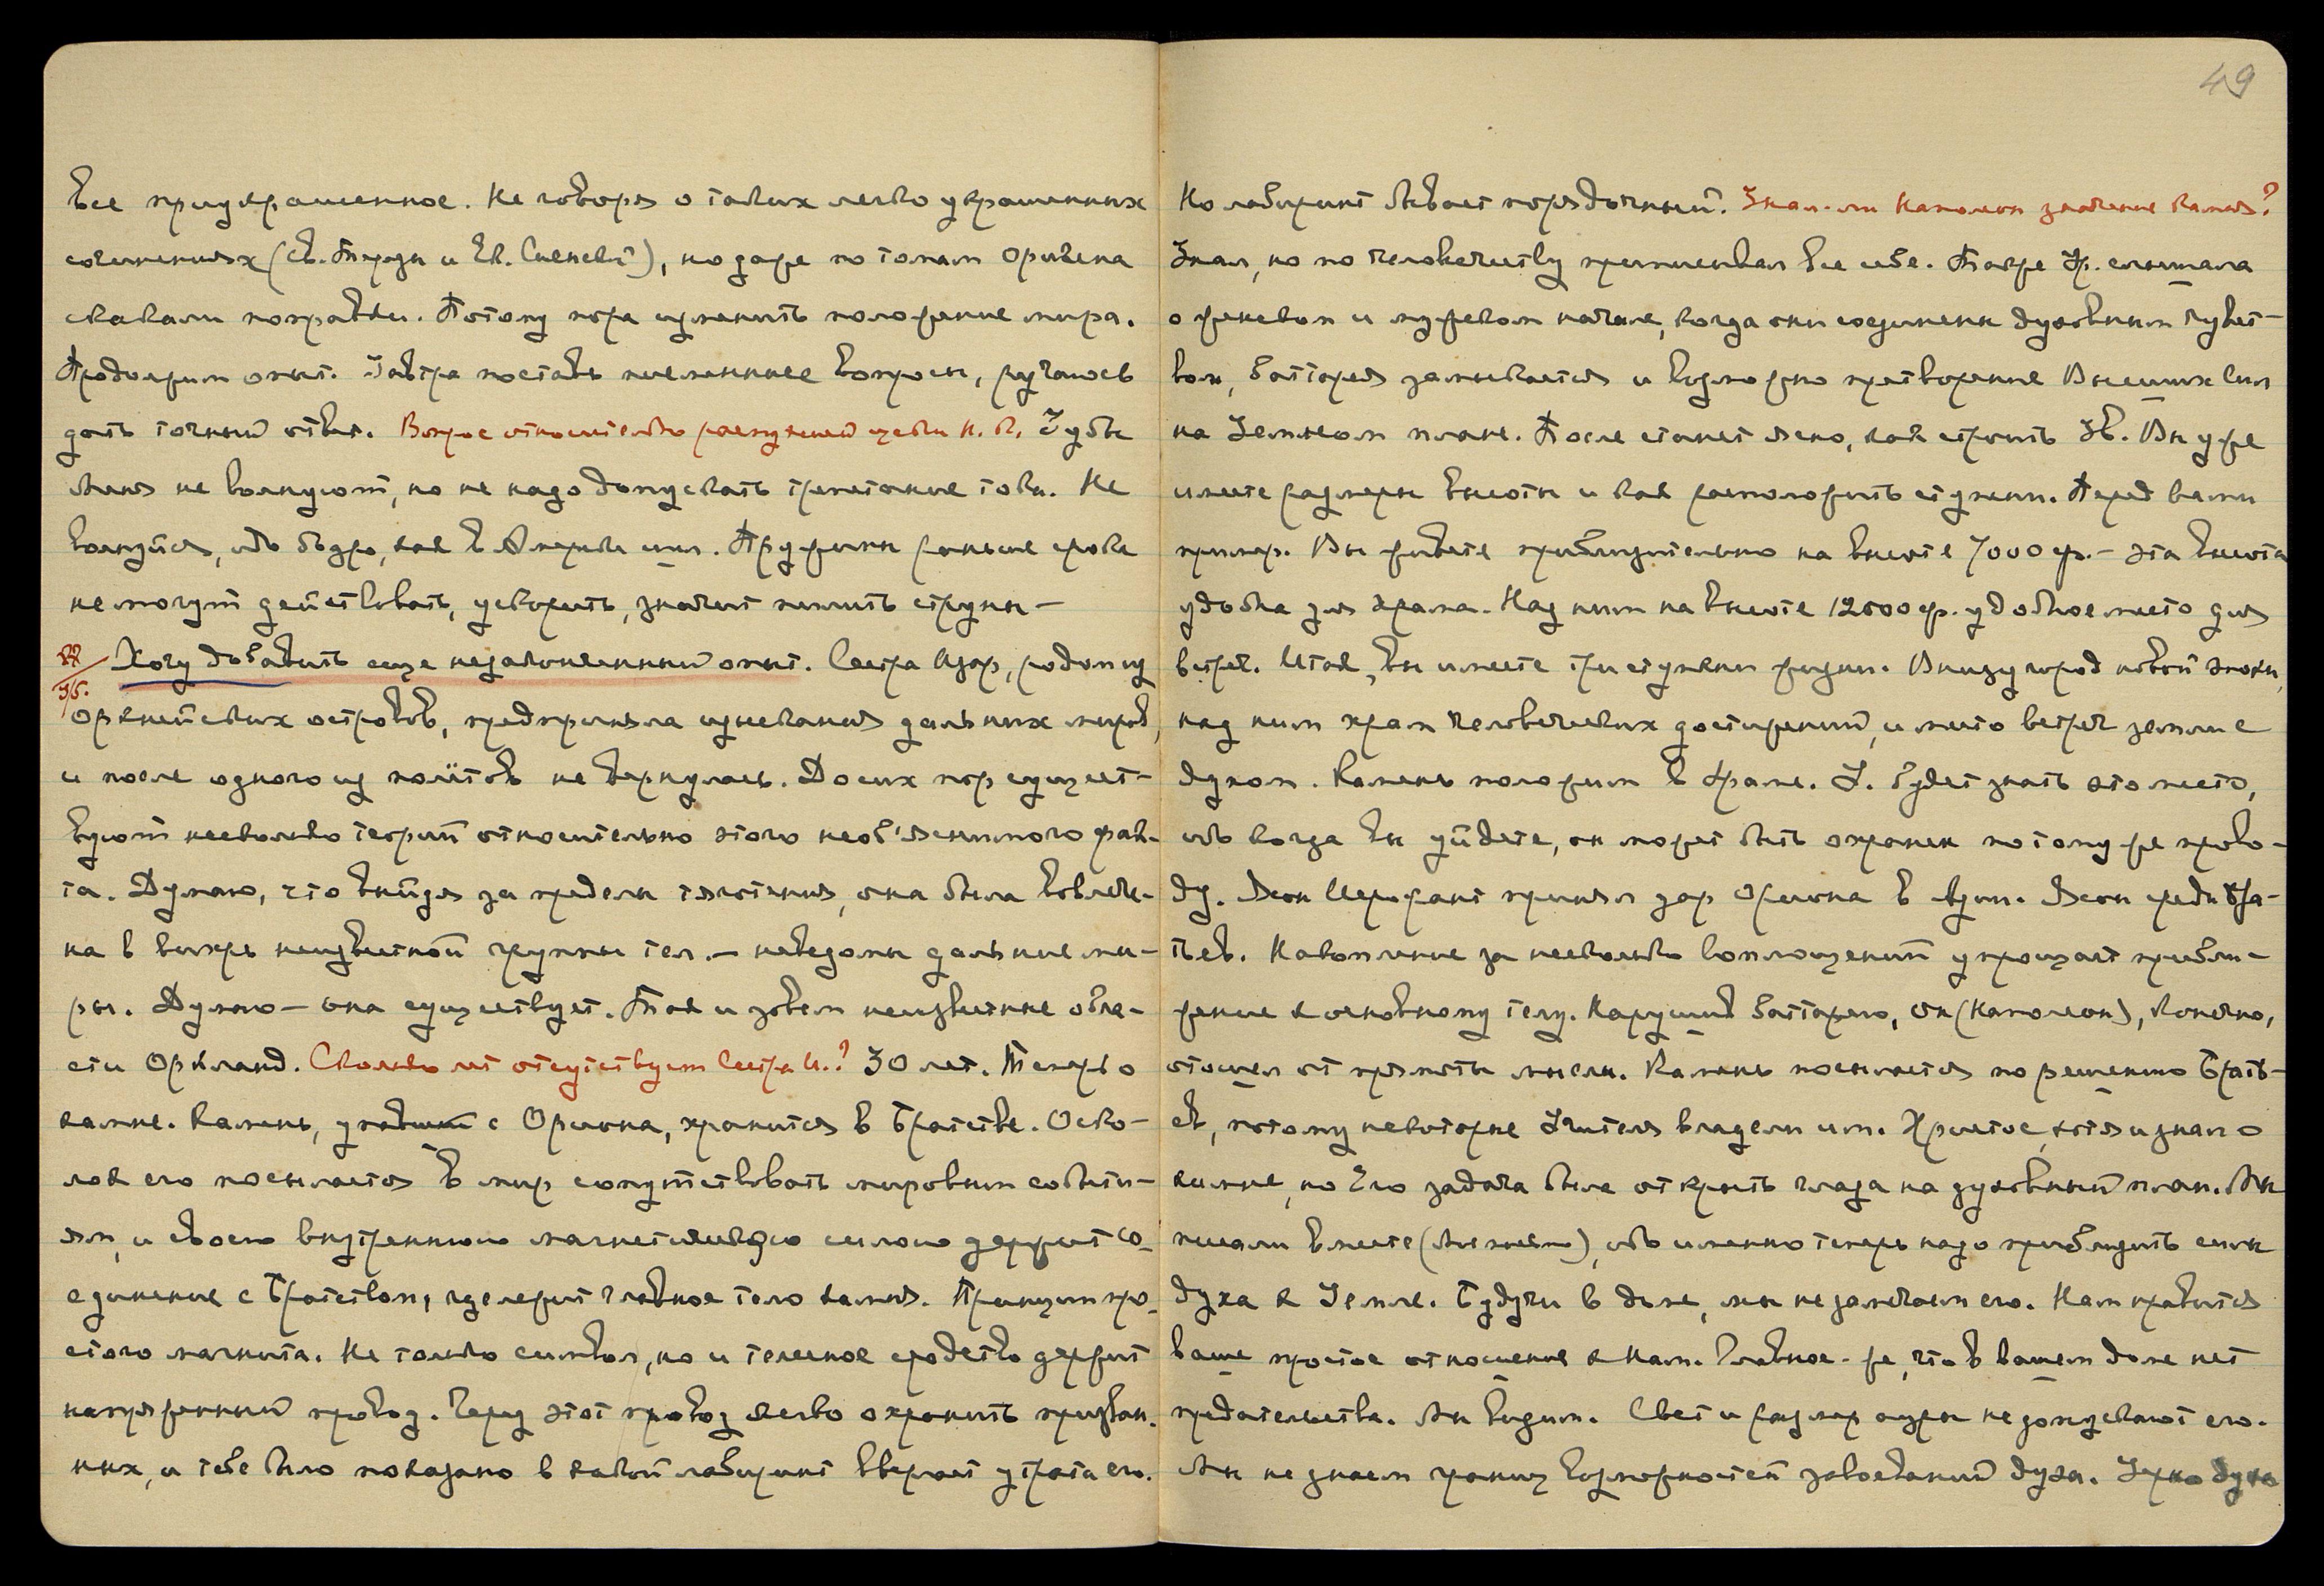 49
все приукрашенное. Не говоря о таких легко украшенных
сочинениях (Св. Терезы и Ек. Сиенской), но даже по томам Оригена
скакали поправки. Потому пора изменить положение мира.
Продолжим опыт. Завтра поставь письменные вопросы, ручаюсь
дать точный ответ. Вопрос относительно Н. К. Судьбы
Меня не волнуют, но не надо допускать трепетание токи. Не
волнуйся, ибо бодро, как в Америке шли. Пружины раньше срока
не могут действовать, ускорить, значит лишить струны —
22/35. Хочу добавить еще незаконченный опыт. Сестра Изар, родом из
Оркнейских островов, предприняла изыскания дальних миров,
и после одного из полётов не вернулась. До сих пор сущест-
вуют несколько теорий относительно этого необ'яснимого фак-
та. Думаю, что выйдя за пределы тяготения, она была вовлече-
на в вихрь неизвестной группы тел. — неведомы дальние ми-
ры. Думаю — она существует. Так и зовем неизвестные обла-
сти Оркланд. Сколько лет отсутствует Сестра И.? 30 лет. Теперь о
камне. Камень, с Ориона, хранится в Братстве. Оско-
лок его посылается в мир сопутствовать мировым событи-
ям, и своею внутреннюю магнетическую силою держит со-
единение с Братством, где лежит главное тело камня. Принцип про-
стого магнита. Не только символ, но и телесное сродство держит
напряженный провод. Через этот провод легко охранить призван-
ных, и тебе было показано в какой лабиринт ввергает утрата его.
Но лабиринт бывает порядочный. Знал-ли Наполеон значение камня?
Знал, но по человечеству приписывал все себе. Также Ур. слышала
о женском и мужском начале, когда они соединены духовным чувст-
вом, батарея замыкается и возможно претворение Высших Сил
на Земном плане. После станет ясно, как строить Зв. Вы уже
имеете размеры высоты и как расположить ступени. Перед вами
пример. Вы живете приблизительно на высоте 7000 ф. — эта высота
удобна для храма. Над ним на высоте 12500 ф. удобное место для
встреч. Итак, вы имеете три ступени жизни. Внизу город новой эпохи,
над ним храм человеческих достижений, и место встреч земли с
духом. Камень положим в храме. У. будет знать это место,
ибо когда вы уйдете, он может быть охранен по тому же прово-
ду. Ясон Иерофант принял дар Ориона в Азии. Ясон среди Бра-
тьев. Накопление за несколько воплощений упрощает прибли-
жение к основному телу. Нарушив батарею, он (Наполеон), конечно,
отошел от прямоты мысли. Камень посылается по решению Брать-
ев, потому некоторые Учителя владели им. Христос хотя и знал о
камне, но Его задача была открыть глаза на духовный план. Мы
решали вместе, ибо именно теперь надо приблизить силы
духа к Земле. Будучи в доме, мы не замечаем его. Нам нравится
ваше простое отношение к Нам. Главное-же, что в вашем доме нет
предательства. Мы видим. Свет и размер ауры не допускают его.
Мы не знаем границ возможностей завоеваний духа. Зерно духа